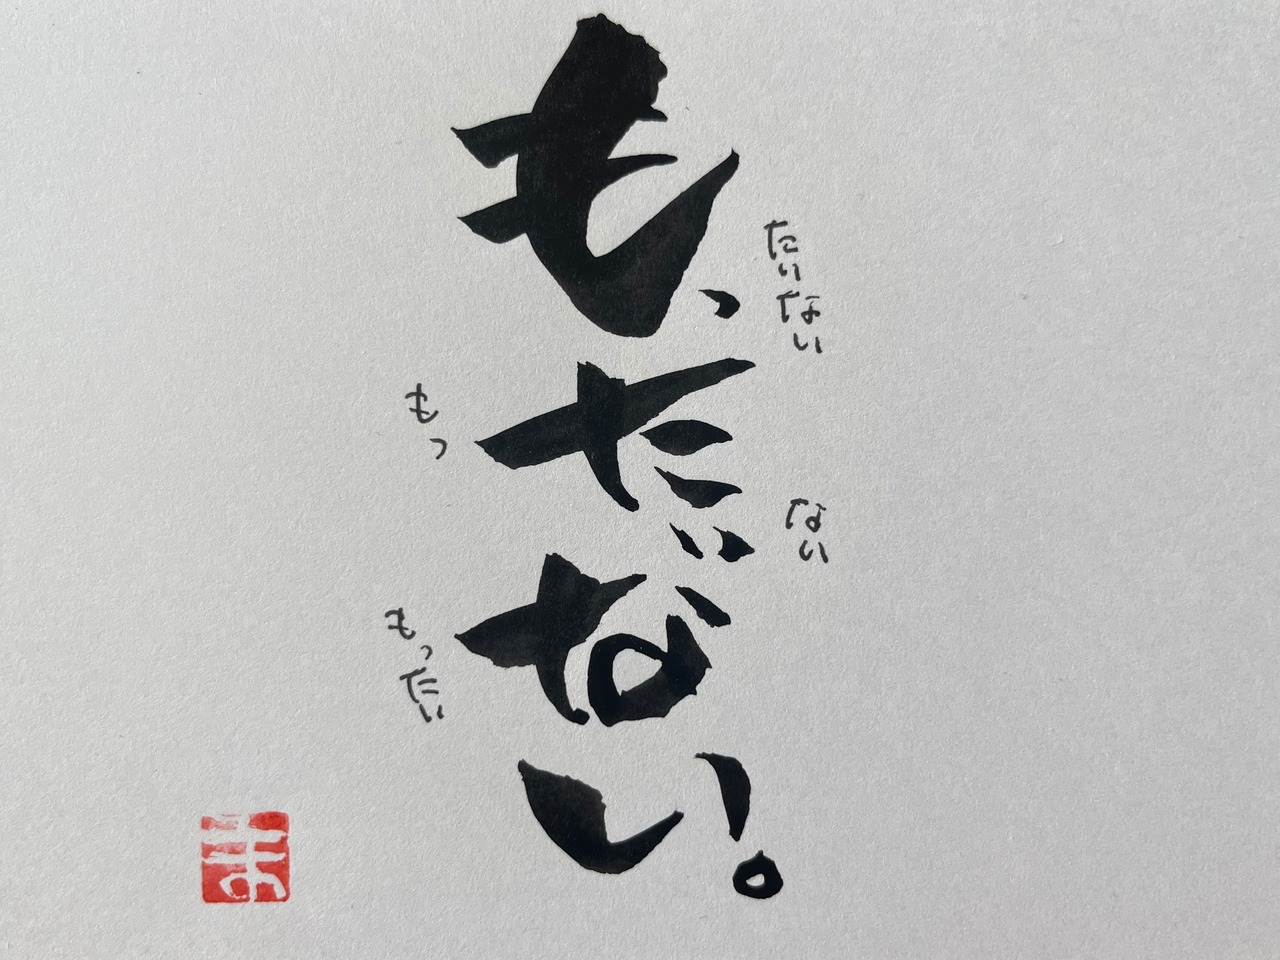 たりない
ない
も、たいない。
もっ
もったい
ま